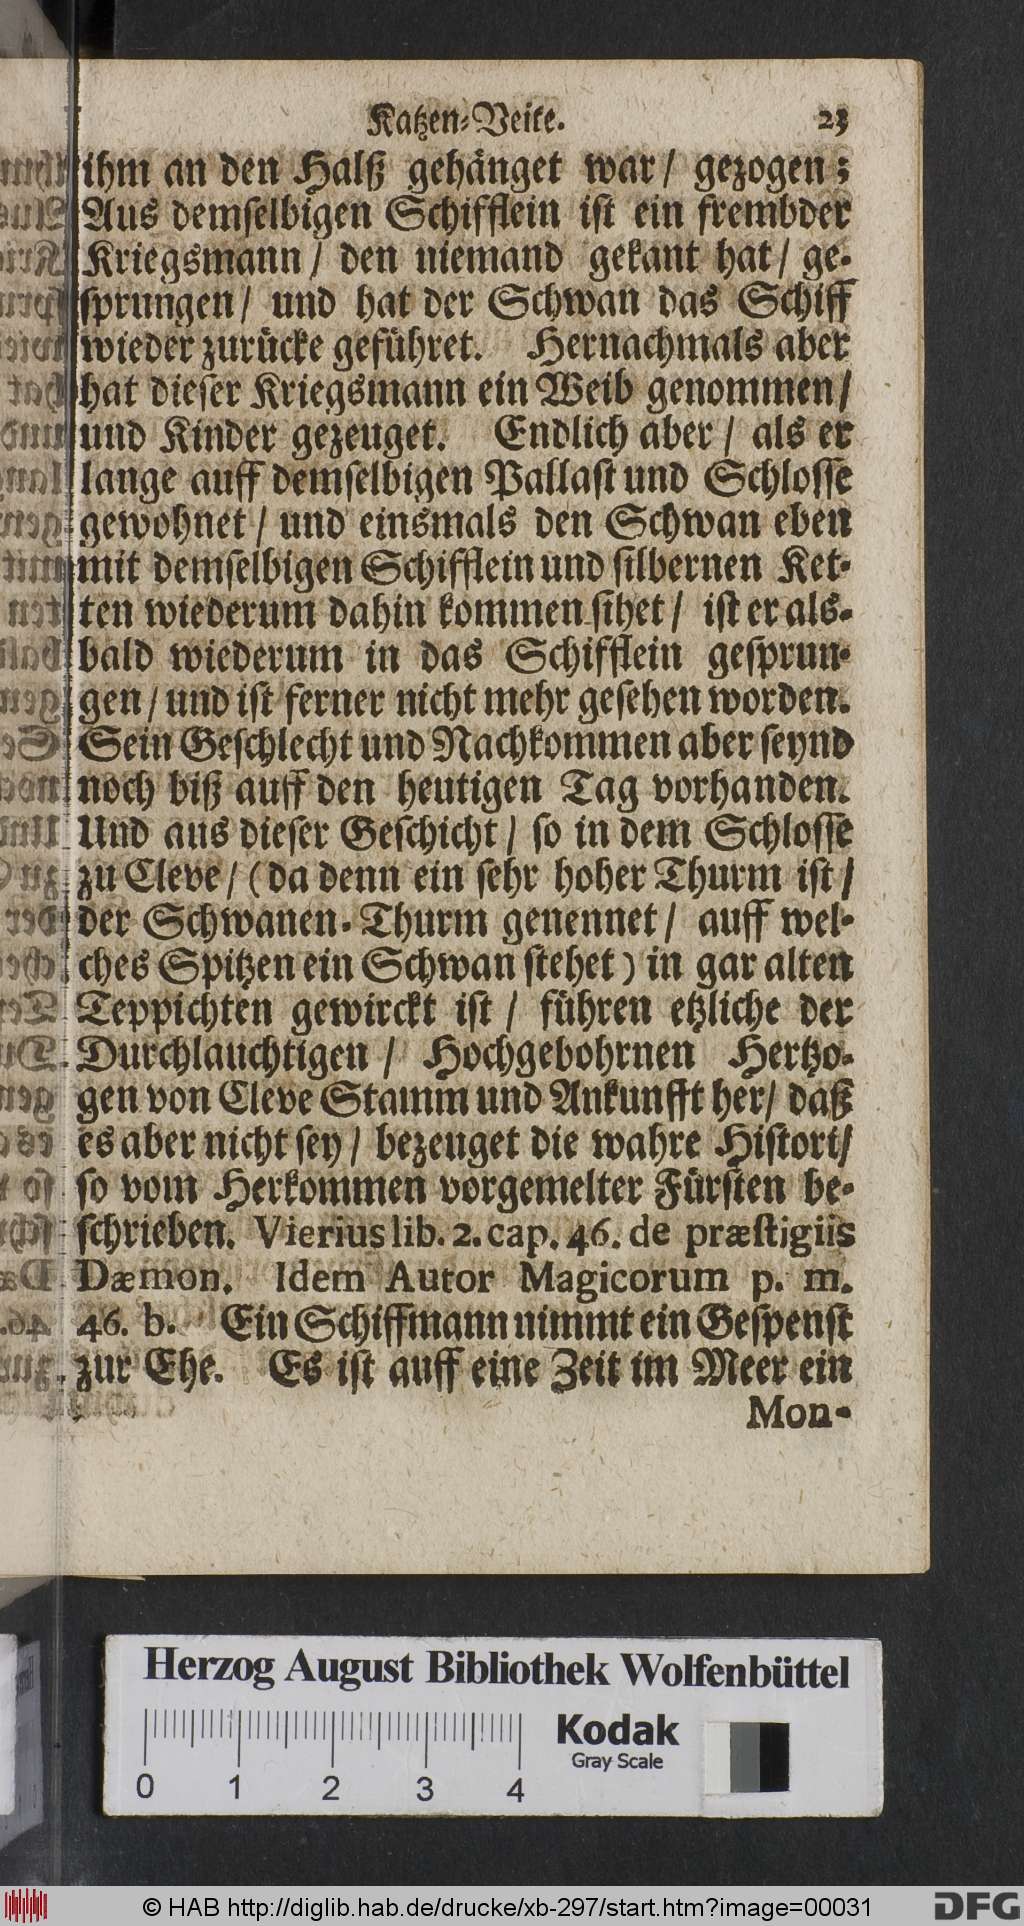 Katzen-Veite. 23
ihm an den Halß gehänget war / gezogen;
Aus demselbigen Schifflein ist ein frembder
Kriegsmann / den niemand gekant hat / ge-
sprungen / und hat der Schwan das Schiff
wieder zurücke geführet. Hernachmals aber
hat dieser Kriegsmann ein Weib genommen /
und Kinder gezeuget. Endlich aber / als er
lange auff demselbigen Pallast und Schlosse
gewohnet / und einsmals den Schwan eben
mit demselbigen Schifflein und silbernen Ket-
ten wiederum dahin kommen sihet / ist er als-
bald wiederum in das Schifflein gesprun-
gen / und ist ferner nicht mehr gesehen worden.
Sein Geschlecht und Nachkommen aber seynd
noch biß auff den heutigen Tag vorhanden.
Und aus dieser Geschicht / so in dem Schlosse
zu Cleve / (da denn ein sehr hoher Thurm ist /
der Schwanen-Thurm genennet / auff wel-
ches Spitzen ein Schwan stehet) in gar alten
Teppichten gewirckt ist / führen etzliche der
Durchlauchtigen / Hochgebohrnen Hertzo-
gen von Cleve Stamm und Ankunfft her / daß
es aber nicht sey / bezeuget die wahre Histori /
so vom Herkommen vorgemelter Fürsten be-
schrieben. Vierius lib. 2. cap. 46. de præstigiis
Dæmon. Idem Autor Magicorum p. m.
46. b. Ein Schiffmann nimmt ein Gespenst
zur Ehe. Es ist auff eine Zeit im Meer ein
Mon-
Herzog August Bibliothek Wolfenbüttel
Kodak
Gray Scale
0 1 2 3 4
© HAB http://diglib.hab.de/drucke/xb-297/start.htm?image=00031
DFG